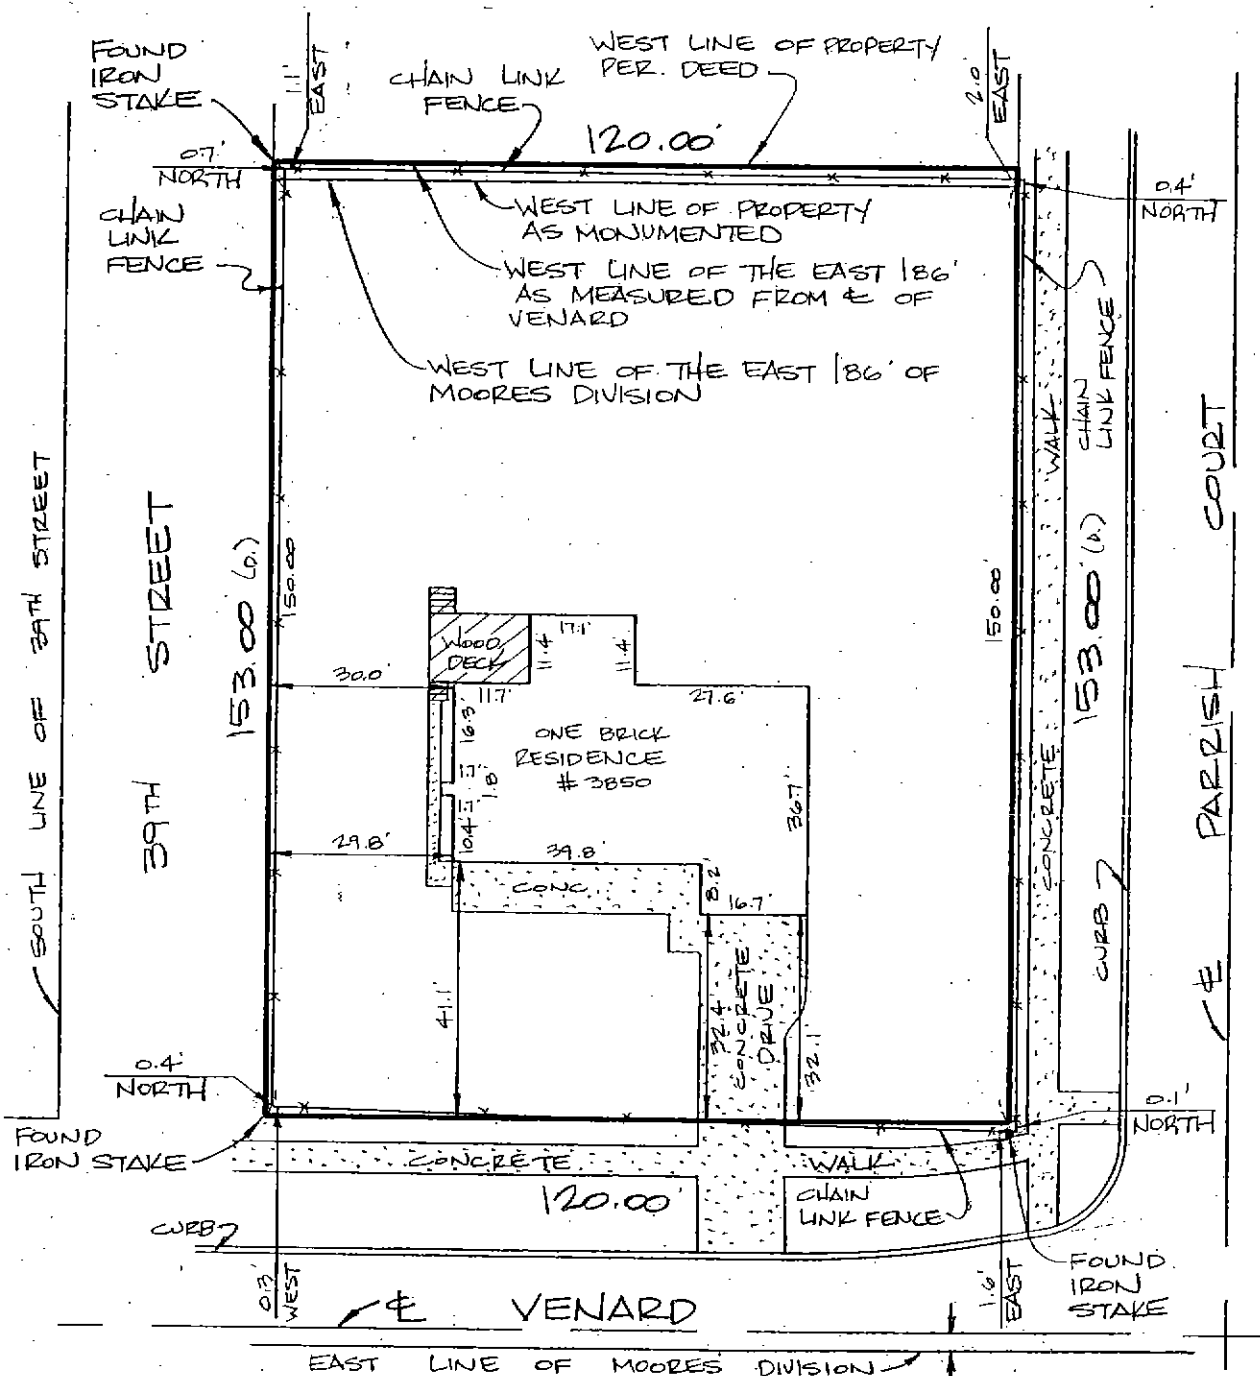 FOUND
IRON
STAKE
1.1'
EAST
CHAIN LINK
FENCE
WEST LINE OF PROPERTY
PER. DEED
2.0'
EAST
120.00'
0.7'
NORTH
0.4'
NORTH
CHAIN
LINK
FENCE
WEST LINE OF PROPERTY
AS MONUMENTED
WEST LINE OF THE EAST 186'
AS MEASURED FROM ℄ OF
VENARD
WEST LINE OF THE EAST 186' OF
MOORES DIVISION
CHAIN
LINK FENCE
WALK
CONCRETE
SOUTH LINE OF 39TH STREET
39TH STREET
153.00 (D.)
150.00
150.00'
153.00' (D.)
℄ PARRISH COURT
CURB
WOOD
DECK
17.1'
11.4'
11.4'
30.0'
11.7'
27.6'
16.3'
1.7'
1.8'
10.4'
ONE BRICK
RESIDENCE
# 3850
36.7'
29.8'
39.8'
CONC
8.2'
16.7'
41.1'
32.4'
CONCRETE
DRIVE
32.1'
0.4'
NORTH
0.1'
NORTH
FOUND
IRON STAKE
CONCRETE
WALK
120.00'
CHAIN
LINK FENCE
CURB
0.3'
WEST
1.6'
EAST
FOUND
IRON
STAKE
℄ VENARD
EAST LINE OF MOORES DIVISION